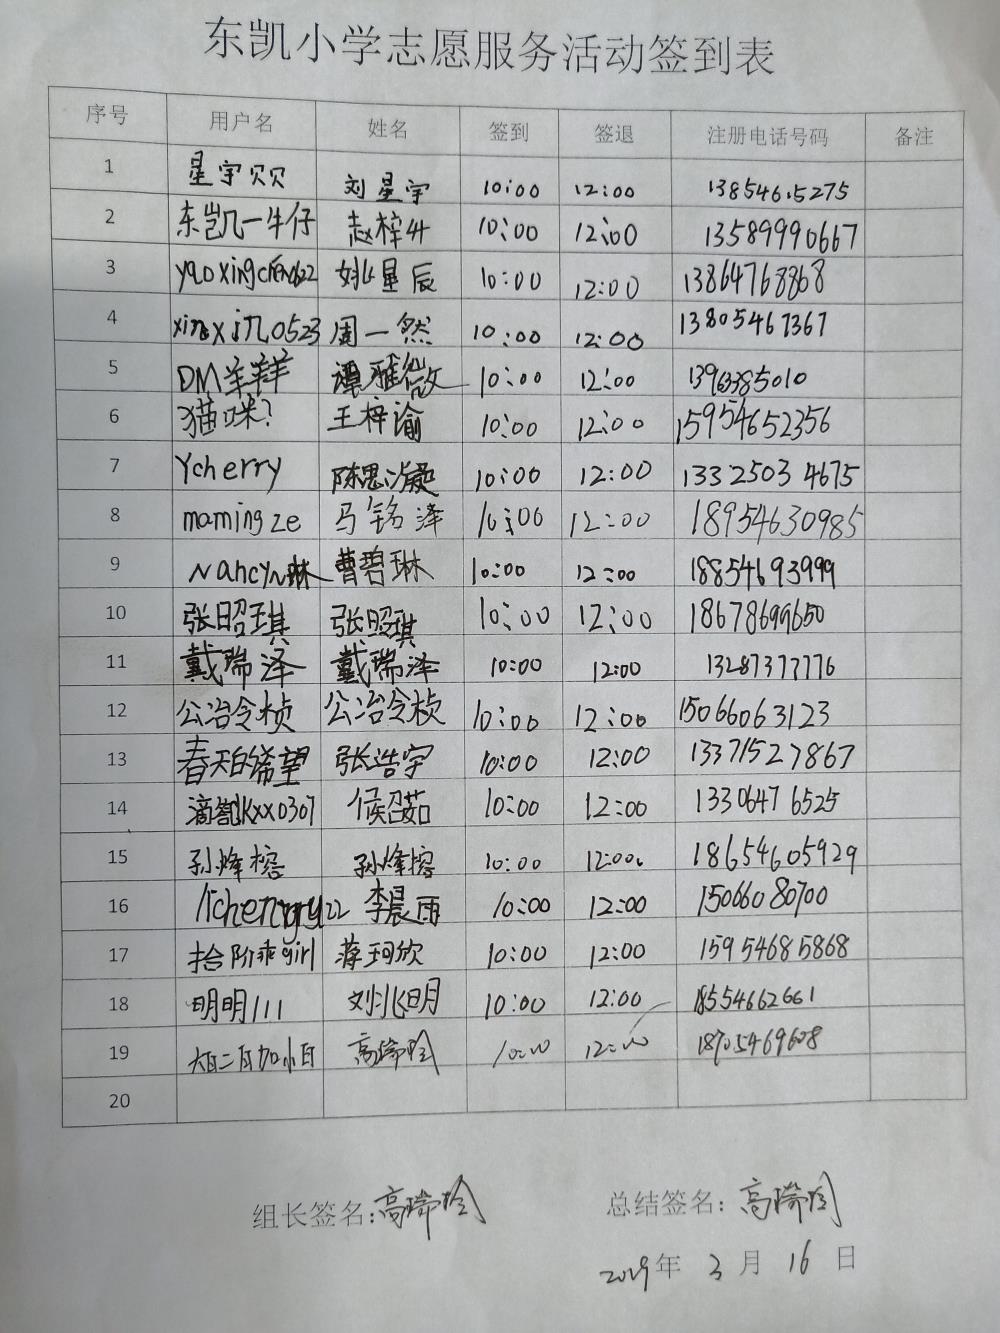 东凯小学志愿服务活动签到表
序号 用户名 姓名 签到 签退 注册电话号码 备注
1 星宇贝贝 刘星宇 10:00 12:00 13854615275
2 东凯一牛仔 赵梓斗 10:00 12:00 13589990667
3 yaoxingchen622 姚星辰 10:00 12:00 13864768868
4 xingxing0523 周一然 10:00 12:00 13805467367
5 DM羊羊 谭雅微 10:00 12:00 1396385010
6 猫咪? 王梓谕 10:00 12:00 15954652356
7 Ycherry 陈思凝 10:00 12:00 13325034675
8 mamingze 马铭泽 10:00 12:00 18954630985
9 Nancy~琳 曹碧琳 10:00 12:00 18854693999
10 张昭琪 张昭琪 10:00 12:00 18678699650
11 戴瑞泽 戴瑞泽 10:00 12:00 13287377776
12 公冶令桢 公冶令桢 10:00 12:00 15066063123
13 春天的希望 张浩宇 10:00 12:00 13371527867
14 kxx0307 候召茹 10:00 12:00 13306476525
15 孙烽榕 孙烽榕 10:00 12:00 18654605929
16 李晨雨 10:00 12:00 15066080700
17 拾阶乖girl 蒋珂欣 10:00 12:00 15954685868
18 明明111 刘兆明 10:00 12:00 18554662661
19 大白二白加小白 高瑞晗 10:00 12:00 18705469608
20
组长签名:高瑞晗 总结签名:高瑞晗
2019年 3 月 16 日